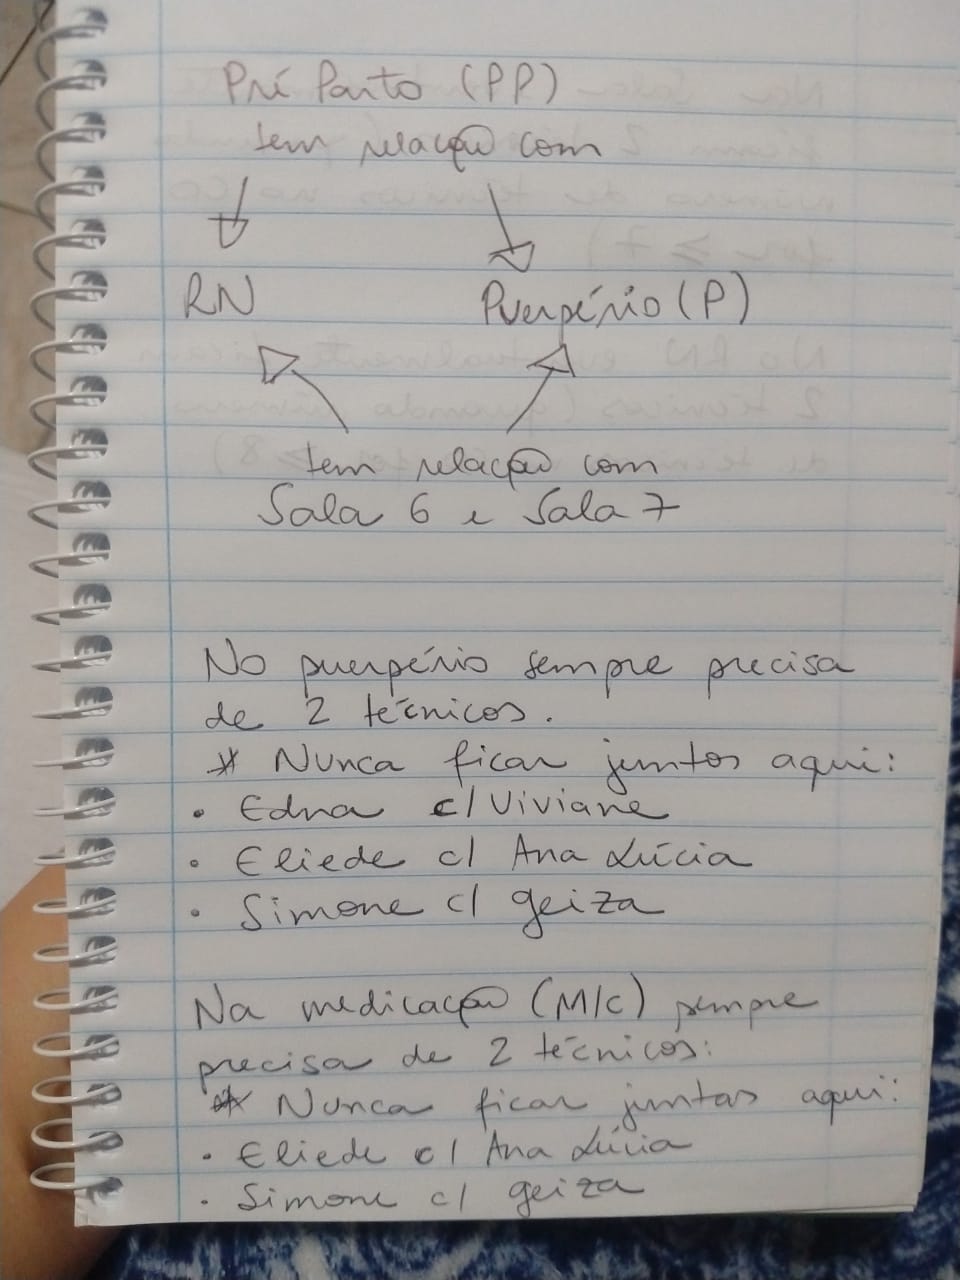 Pré Parto (PP)
tem relação com
RN Puerpério (P)
tem relação com
Sala 6 e Sala 7
No puerpério sempre precisa
de 2 técnicos.
* Nunca ficar juntos aqui:
• Edna c/ Viviane
• Eliede c/ Ana Lúcia
• Simone c/ geiza
Na medicação (M/c) sempre
precisa de 2 técnicos:
* Nunca ficar juntas aqui:
• Eliede c/ Ana Lúcia
• Simone c/ geiza